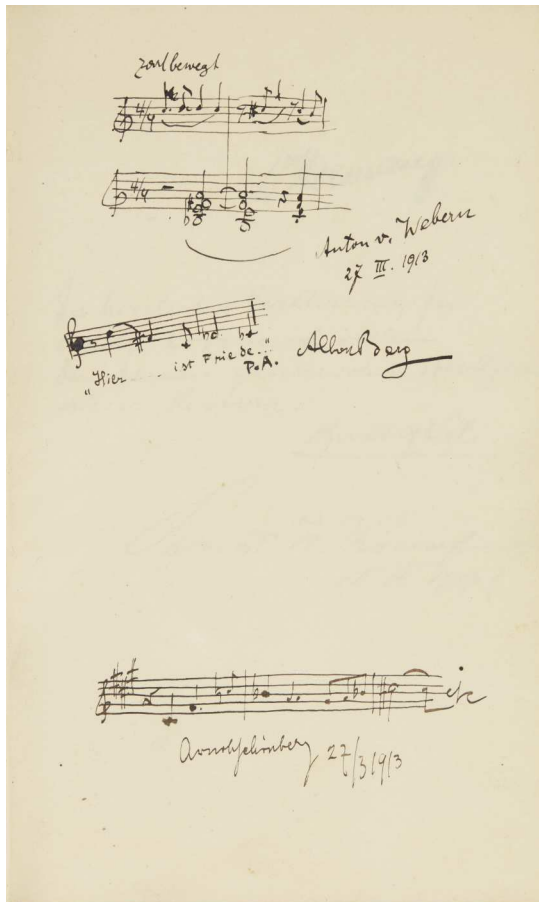 zart bewegt
4/4
4/4
Anton v. Webern
27 III. 1913
"Hier ... ist Friede..."
P.A.
Alban Berg
etc
Arnold Schönberg 27/3 1913